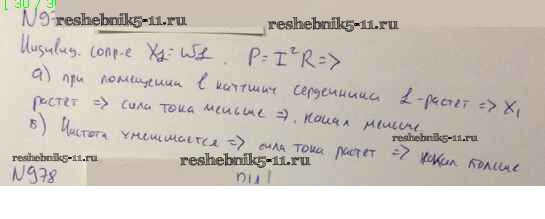 [ 30 / 3
N97
reshebnik5-11.ru
reshebnik5-11.ru
Индивид. сопр-е X_L = ωL. P = I²R =>
а) при помещении в катушку сердечника L - растет => X_L
растет => сила тока меньше => накал меньше
reshebnik5-11.ru
б) Частота уменьшается => сила тока растет => накал больше
reshebnik5-11.ru
N978